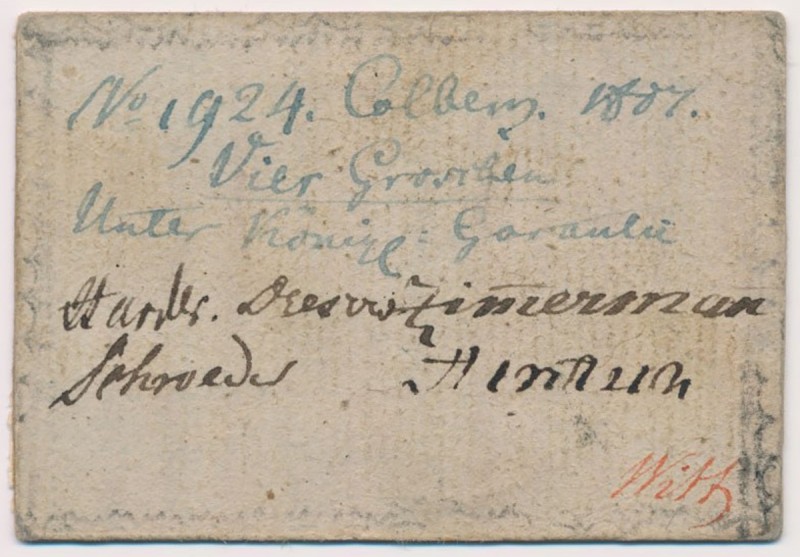 No 1924. Colberg. 1807.
Vier Groschen
Unter Königl: Garantie
Harder. Dresow Zimmerman
Schroeder Hentsch
Witt